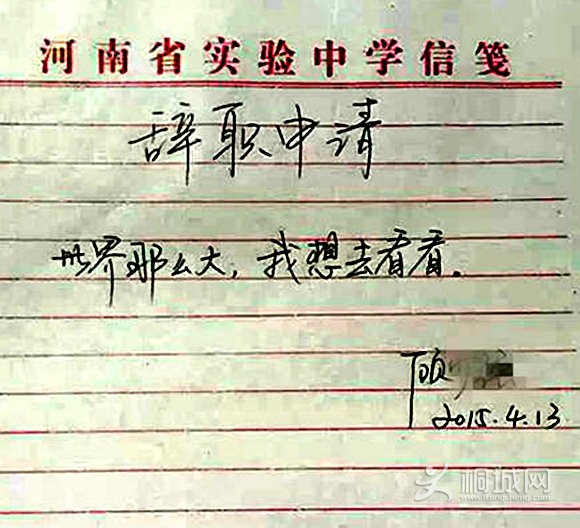 河南省实验中学信笺
辞职申请
世界那么大，我想去看看。
顾
2015.4.13
桐城网
www.itongcheng.com